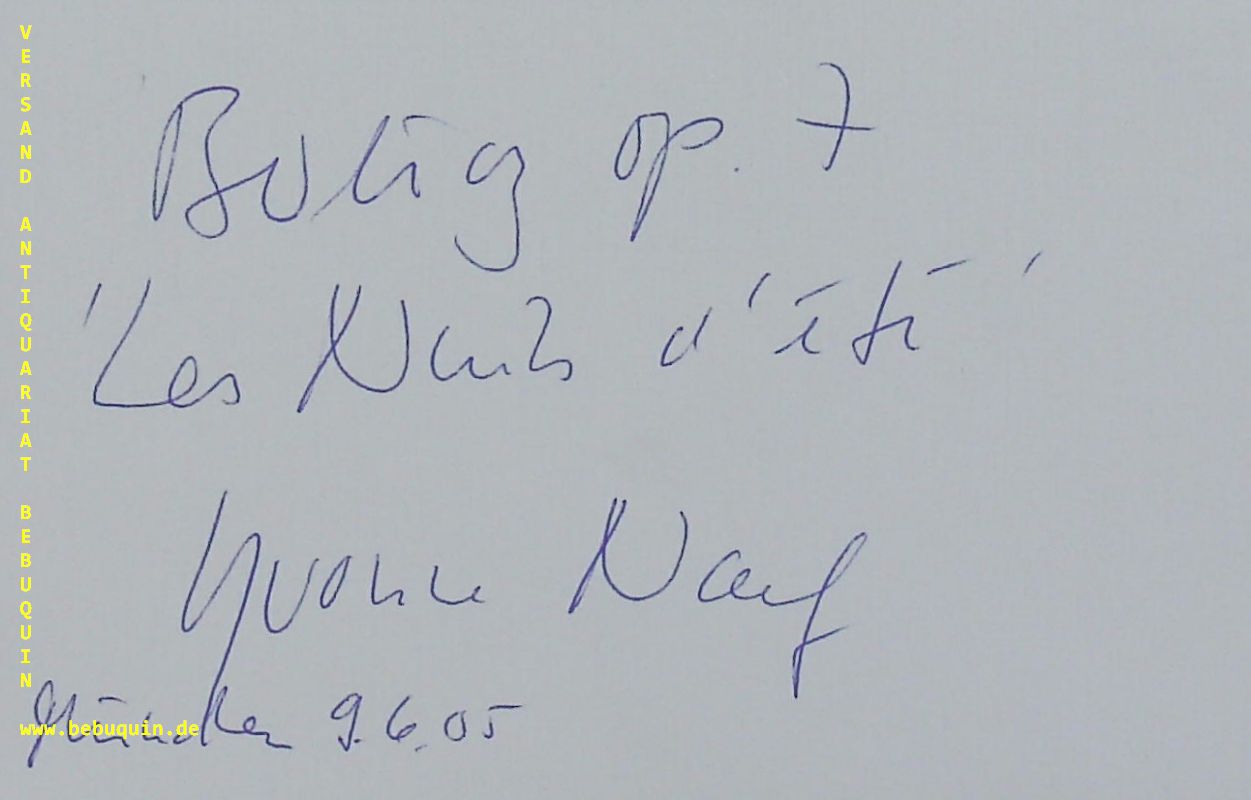 Berlioz op. 7
'Les Nuits d'été'
Yvonne Naef
München 9.6.05
VERSAND ANTIQUARIAT BEBUQUIN
www.bebuquin.de